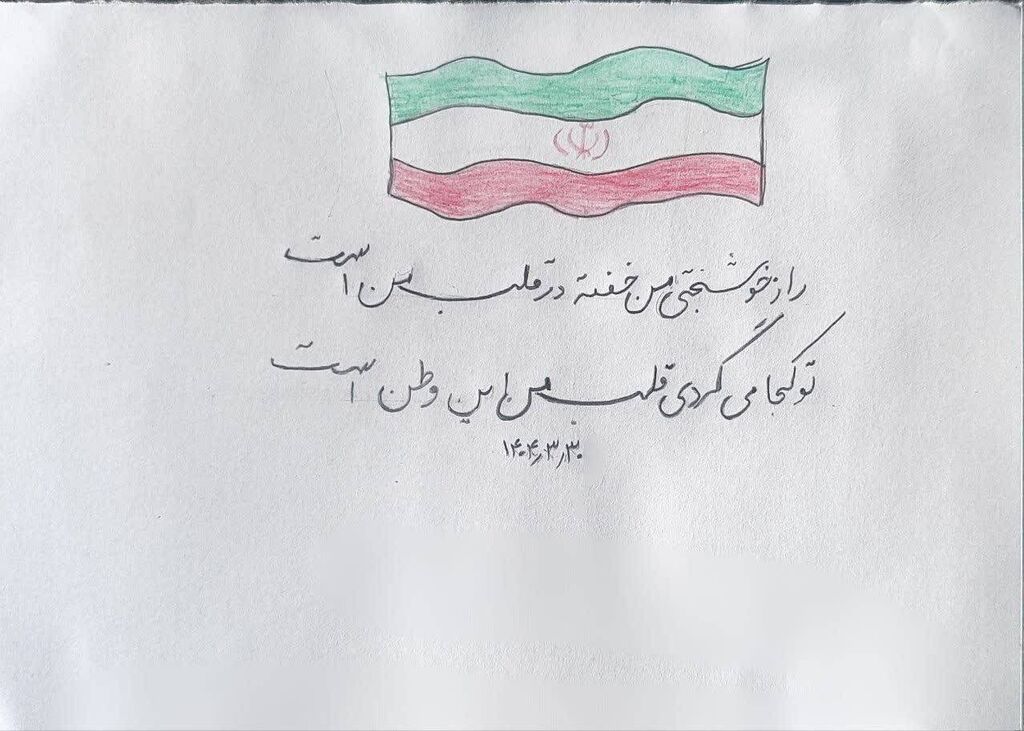 راز خوشبختی من خفته در قلب من است
تو کجا می گردی قلب من این وطن است
۱۴۰۴٫۳٫۳۰